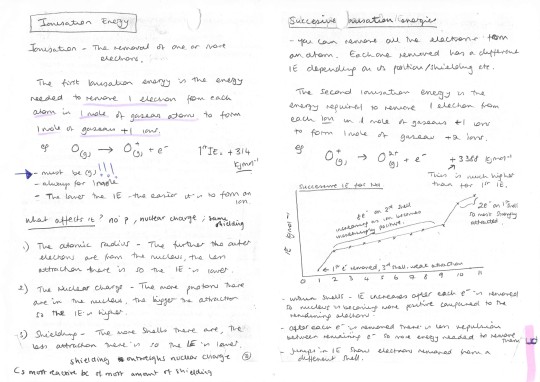 Ionisation Energy
Ionisation - The removal of one or more
electrons.
The first Ionisation energy is the energy
needed to remove 1 electron from each
atom in 1 mole of gaseous atoms to form
1 mole of gaseous +1 ions.
eg O(g) → O+(g) + e-   1st IE. +1314
kJmol-1
- must be (g) !!!
- always for 1 mole
- The lower the IE - the easier it is to form an
ion.
What affects it? no. p, nuclear charge, same
shielding
1) The atomic radius - The further the outer
electrons are from the nucleus, the less
attraction there is so the IE is lower.
2) The Nuclear Charge - The more protons there
are in the nucleus, the bigger the attraction
so the IE is higher.
3) Shielding - The more shells there are, the
less attraction there is so the IE is lower.
shielding outweighs nuclear charge
Cs most reactive bc of most amount of shielding
Successive Ionisation energies
- you can remove all the electrons from
an atom. Each one removed has a different
IE depending on its position/shielding etc.
The second Ionisation energy is the
energy required to remove 1 electron from
each ion in 1 mole of gaseous +1 ions
to form 1 mole of gaseous +2 ions.
eg O+(g) → O2+(g) + e-   +3388 kJmol-1
This is much higher
than for 1st IE.
Successive IE for Na
8e- on 2nd shell
increasing as ion becomes
increasingly positive.
2e- on 1st shell
so most strongly
attracted
IE kJmol-1
1st e- removed, 3rd shell, weak attraction
0 1 2 3 4 5 6 7 8 9 10 11
- within shells - IE increases after each e- is removed
so nucleus is becoming more positive compared to the
remaining electrons.
- after each e- is removed there is less repulsion
between remaining e- so more energy needed to remove
them
- Jumps in IE show electrons removed from a
different shell.